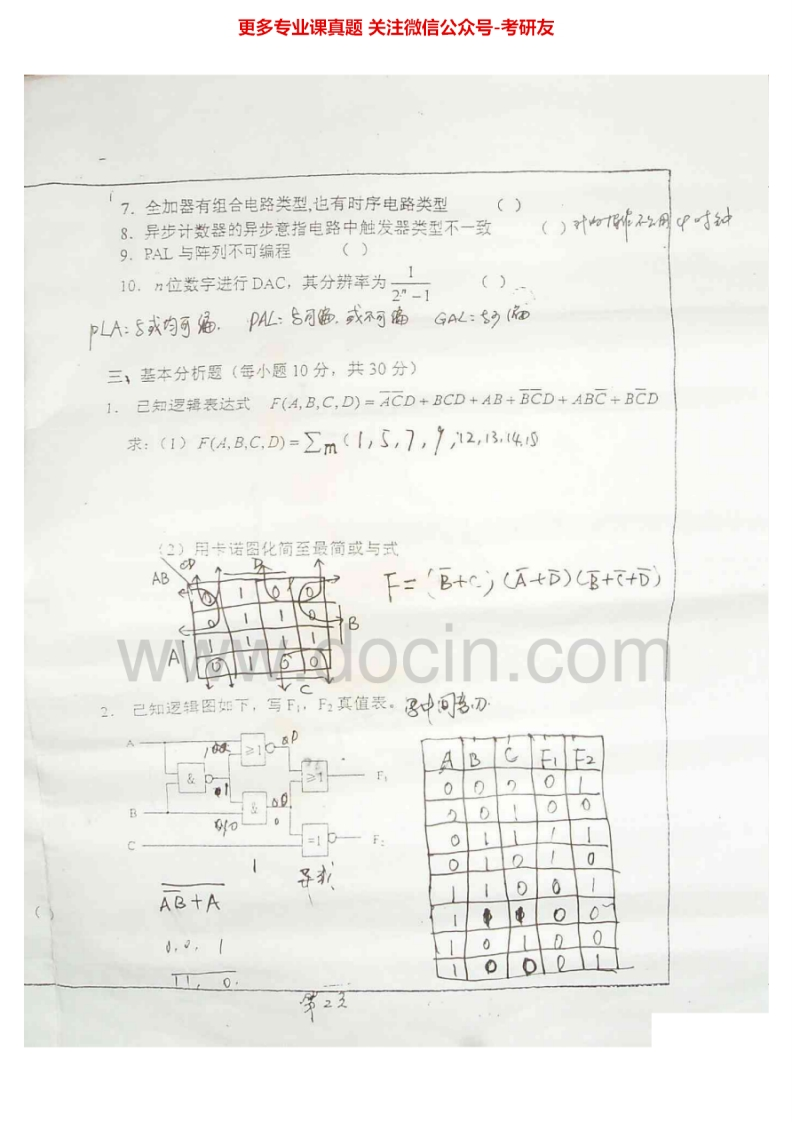 更多专业课真题 关注微信公众号-考研友
7. 全加器有组合电路类型,也有时序电路类型 ( )
8. 异步计数器的异步意指电路中触发器类型不一致 ( )
9. PAL 与阵列不可编程 ( )
10. n位数字进行 DAC，其分辨率为 1/(2ⁿ−1) ( )
PLA: 与或均可编. PAL: 与可编. 或不可编 GAL:
三、基本分析题（每小题 10 分，共 30 分）
1. 已知逻辑表达式 F(A,B,C,D) = A̅C̅D + BCD + AB + B̅C̅D + ABC̅ + BC̅D
求:（1）F(A,B,C,D) = ∑m (1,5,7,9,12,13,14,15
（2）用卡诺图化简至最简或与式
AB CD D
F = (B̅+C)(A̅+D)(B̅+C̅+D̅)
0 1 0 0
0 1 1 0
1 1 1 1
0 1 0 0
B
A
C
www.docin.com
2. 已知逻辑图如下，写 F₁，F₂ 真值表。
A ≥1
& ≥1 F₁
B &
C =1 F₂
1
A̅B̅+A
0,0,1
11, 0.
A B C F1 F2
0 0 0 0 1
0 0 1 0 0
0 1 1 1 1
0 1 0 1 0
1 1 0 0 1
1 1 1 0 0
1 0 1 0 0
1 0 0 0 1
第2页